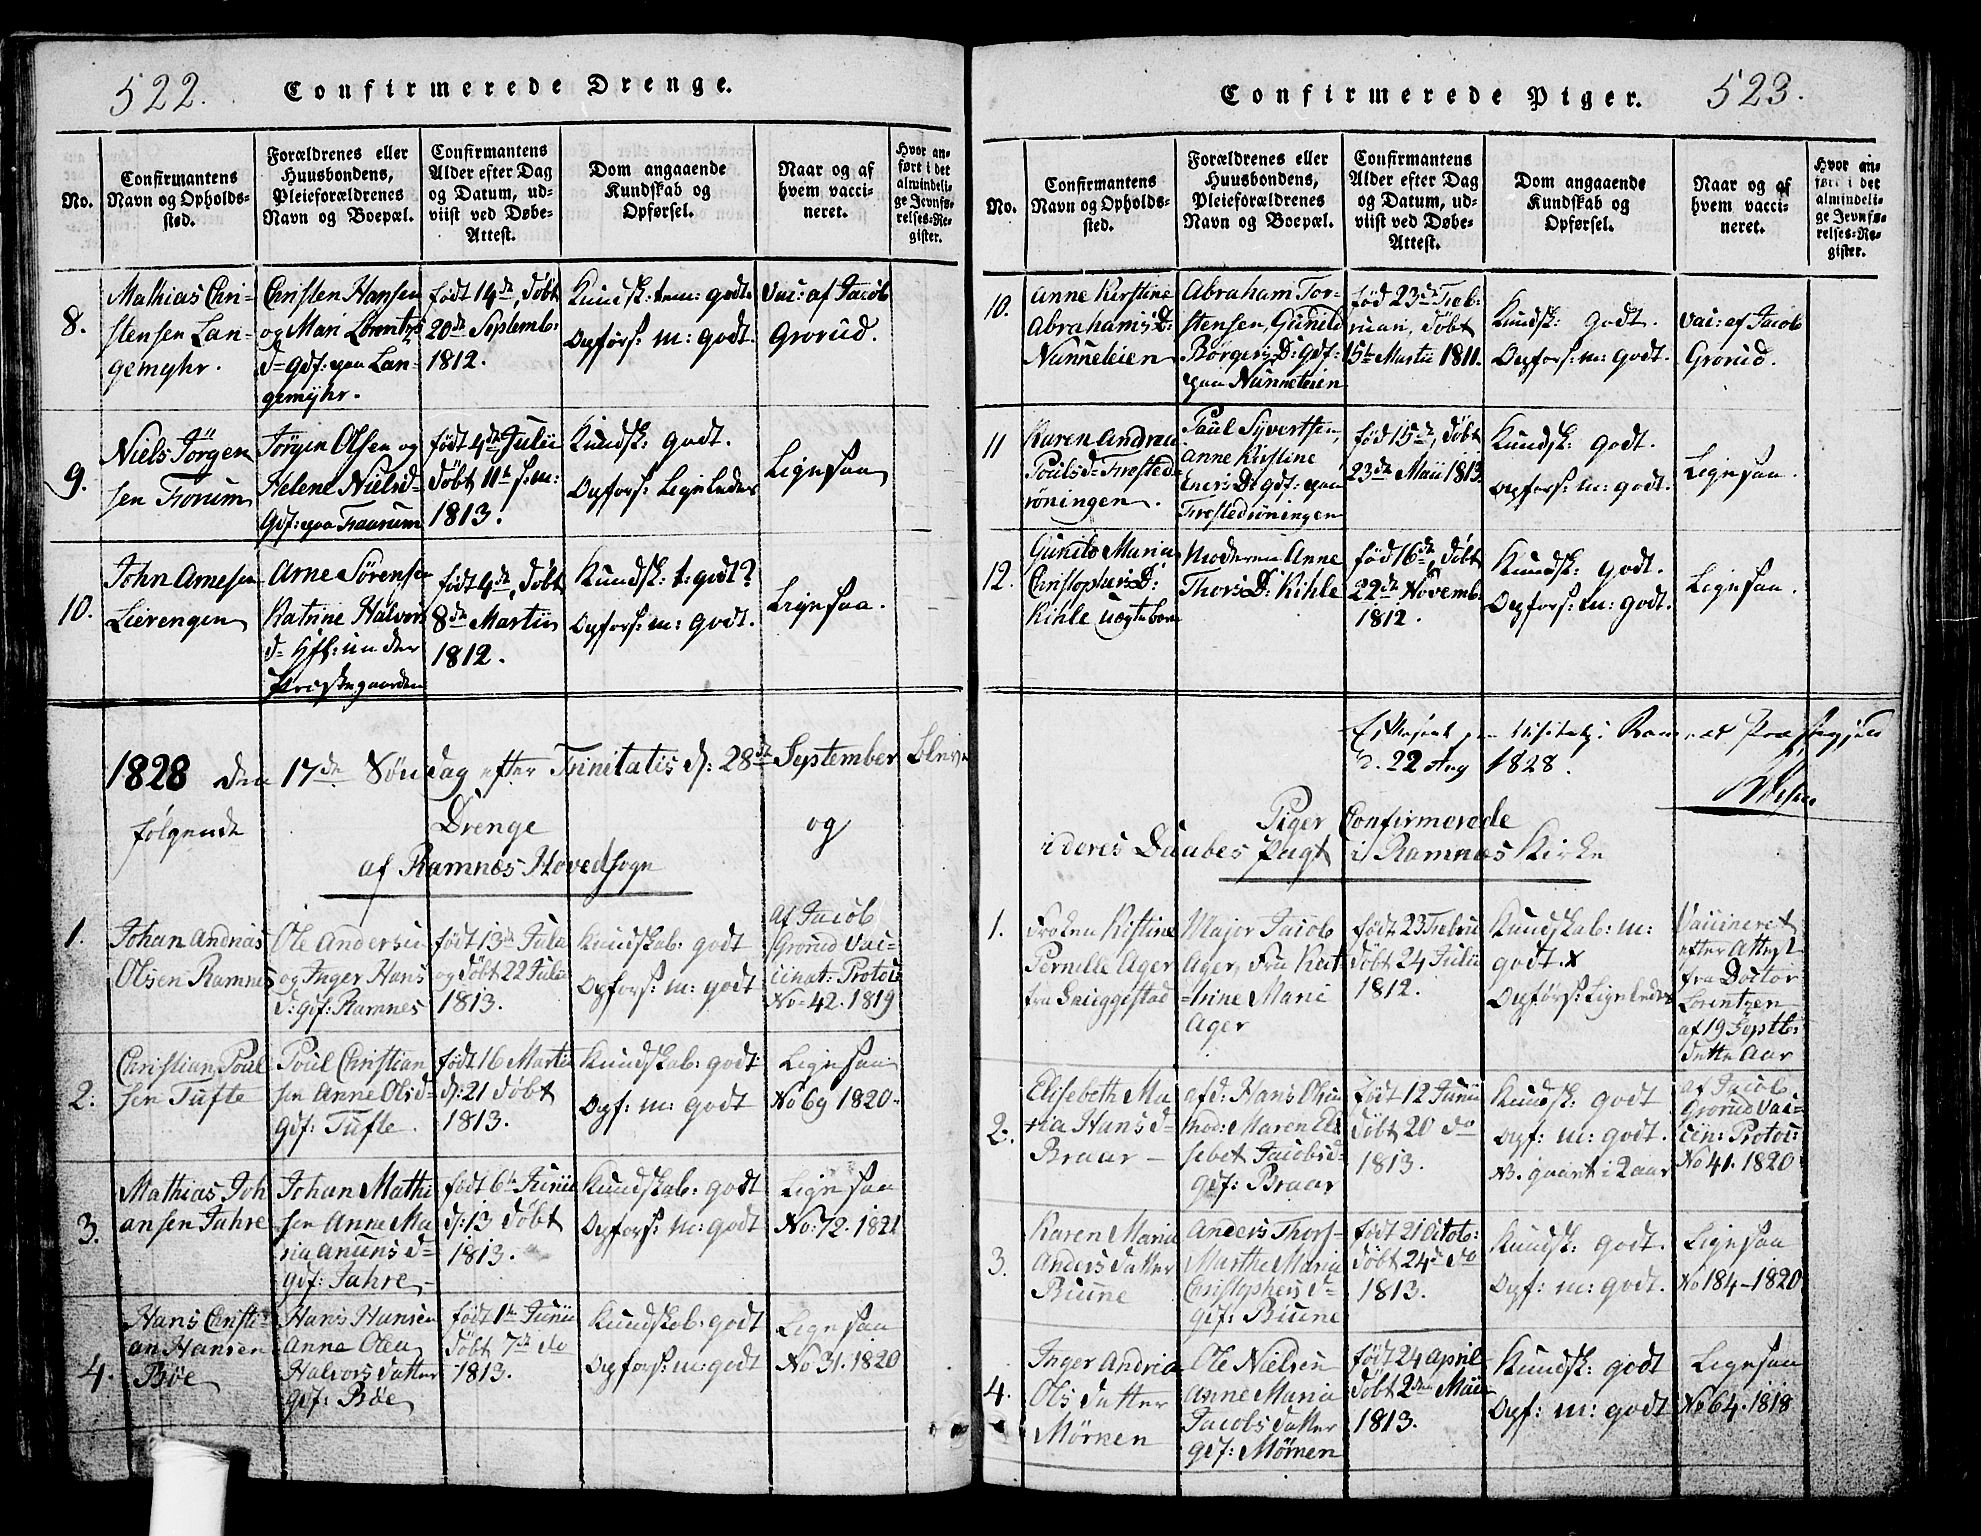 522.
Confirmerede Drenge.
No.
Confirmantens
Navn og Opholds-
sted.
Forældrenes eller
Huusbondens,
Pleieforældrenes
Navn og Boepæl.
Confirmantens
Alder efter Dag
og Datum, ud-
viist ved Døbe-
Attest.
Dom angaaende
Kundskab og
Opførsel.
Naar og af
hvem vacci-
neret.
Hvor an-
ført i det
almindeli-
ge Jevnfø-
relses-Re-
gister.
8.
Mathias Chri-
stensen Lan-
gemyhr.
Christen Hansen
og Mari Lorentz
d= gdf: paa Lan-
gemyhr.
født 14de, døbt
20de Septemb:
1812.
Kundsk: tem: godt.
Opførs: m: godt.
Vac: af Jacob
Grorud.
9.
Niels Jörgen
sen Frorum
Jørgen Olsen og
Helene Nielsd=
gdf: paa Fraarum
født 4de Julii
døbt 11te s: m:
1813.
Kundsk: godt.
Opførs: Ligeledes
Ligesaa
10.
John Arnesen
Lierengen
Arne Sörensen
Katrine Halvors
d= Hfl: under
Præstegaarden
født 4de, døbt
8de Martii
1812.
Kundsk: t: godt?
Opførs: m: godt.
Ligesaa.
1828 den 17de Søndag efter Trinitatis d: 28de September bleve
følgende Drenge og
af Ramnes Hovedsogn
1.
Johan Andreas
Olsen Ramnes
Ole Andersen
og Inger Hans
d: gdf: Ramnes
født 13de Julii
og døbt 22 Julii
1813.
Kundskab: godt
Opførs: m: godt
Af Jacob
Grorud Vac-
cinat: Protoc:
No 42. 1819
2.
Christian Poul
sen Tufte
Poul Christian
sen Anne Olsd=
gdf: Tufte.
født 16 Martii
d: 21 døbt
1813.
Kundskab: godt
Opf: m: godt
Ligesaa
No 69 1820.
3.
Mathias Joh
ansen Jahre
Johan Mathi
sen Anne Ma
ria Anuns d=
gdf: Jahre
født 6te Junii
d: 13 døbt
1813.
Kundskab: godt
Opførs: m: godt
Ligesaa
No: 72. 1821
4.
Hans Christi
an Hansen
Böe
Hans Hansen
Anne Olea
Halvorsdatter
gdf: Böe
født 1te Junii
døbt 7de do
1813.
Kundskab: godt
Opførs: m: godt
Ligesaa
No 31. 1820
Confirmerede Piger.
523.
No.
Confirmantens
Navn og Opholds-
sted.
Forældrenes eller
Huusbondens,
Pleieforældrenes
Navn og Boepæl.
Confirmantens
Alder efter Dag
og Datum, ud-
viist ved Døbe-
Attest.
Dom angaaende
Kundskab og
Opførsel.
Naar og af
hvem vacci-
neret.
Hvor an-
ført i det
almindeli-
ge Jevnfø-
relses-Re-
gister.
10.
Anne Kirstine
Abrahams D:
Nunneleien
Abraham Tor-
stensen, Gunild
Börgers D: gdf:
paa Nunneleien
født 23de Feb-
ruari, døbt
15te Martii 1811.
Kundsk: godt.
Opførs: m: godt.
Vac: af Jacob
Grorud.
11
Karen Andrea
Poulsd= Frested-
röningen.
Paul Syvertsen,
Anne Kirstine
Eners D: gdf: paa
Frestedröningen
født 15de, døbt
23de Maii 1813
Kundsk: godt.
Opførs: m: godt.
Ligesaa.
12.
Gunild Maria
Christophers D:
Kihle uægtebarn
Moderen Anne
Thors D: Kihle
født 16de, døbt
22de Novemb:
1812.
Kundsk: godt.
Opførs: m: godt.
Ligesaa.
d. 22 Aug 1828.
Piger Confirmerede
i deres Daabes Pagt i Ramnæs Kirke
1.
Frøken Kistine
Pernille Ager
fra Sniggestad
Major Jacob
Ager, Fru Kat
trine Marie
Ager
født 23 Febru
døbt 24 Julii
1812.
Kundskab: m:
godt. x
Opførs: Ligeledes
Vaccineret
efter Attest
fra Doctor
Lorentzen
af 19 Septb:
dette Aar
2.
Elisebeth Ma
ria Hans d=
Braar -
afd: Hans Olsen
mod: Maren Eli
sebet Jacobsd=
gdf: Braar
født 12 Junii
døbt 20 do
1813.
Kundsk: godt
Opf: m: godt.
NB. gaaet i 2 aar
af Jacob
Grorud Vac-
cin: Protoc:
No 41. 1820
3.
Karen Maria
Anders datter
Biune
Anders Thors-
Marthe Maria
Christophers d=
gdf: Biune
født 21 Octob:
døbt 24de do
1813.
Kundsk: godt.
Opf: m: godt.
Ligesaa
No 184-1820
4.
Inger Andrea
Ols datter
Mörken
Ole Nielsen
Anne Maria
Jacobs datter
gdf: Mörken
født 24 April
døbt 2den Maii
1813.
Kundsk: godt
Opf: m: godt
Ligesaa
No 64. 1818